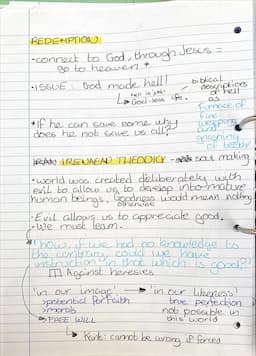 REDEMPTION
• connect to God, through Jesus =
go to heaven
• ISSUE: God made hell!
hell is just
↳ God-less life.
biblical
descriptions
of hell
as
furnace of
fire
weeping
and
gnashing
of teeth!
• If he can save some why
does he not save us all?
IRENAEAN THEODICY - soul making
• World was created deliberately with
evil to allow us to develop into mature
human beings. Goodness would mean nothing
otherwise
• Evil allows us to appreciate good.
• We must learn.
"how, if we had no knowledge to
the contrary, could we have
instruction in that which is good?"
Against heresies
'in our image' → 'in our likeness'
> potential for faith
> morals
> FREE WILL
true perfection
not possible in
this world
↳ Kant: cannot be wrong if forced